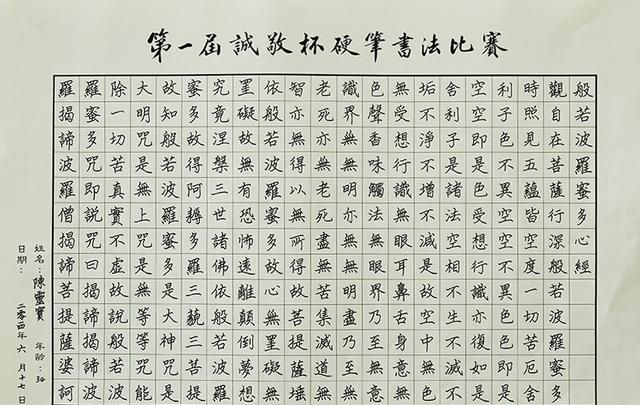 第一屆誠敬杯硬筆書法比賽
般若波羅蜜多心經
觀自在菩薩行深般若波羅蜜多
時照見五蘊皆空度一切苦厄舍
利子色不異空空不異色色即是
空空即是色受想行識亦復如是
舍利子是諸法空相不生不滅不
垢不淨不增不減是故空中無色
無受想行識無眼耳鼻舌身意無
色聲香味觸法無眼界乃至無意
識界無無明亦無無明盡乃至無
老死亦無老死盡無苦集滅道無
智亦無得以無所得故菩提薩埵
依般若波羅蜜多故心無罣礙無
罣礙故無有恐怖遠離顛倒夢想
究竟涅槃三世諸佛依般若波羅
蜜多故得阿耨多羅三藐三菩提
故知般若波羅蜜多是大神咒是
大明咒是無上咒是無等等咒能
除一切苦真實不虛故說般若波
羅蜜多咒即說咒曰揭諦揭諦波
羅揭諦波羅僧揭諦菩提薩婆訶
姓名：陳靈寶 年齡：34
日期：二零一四年六月十七日